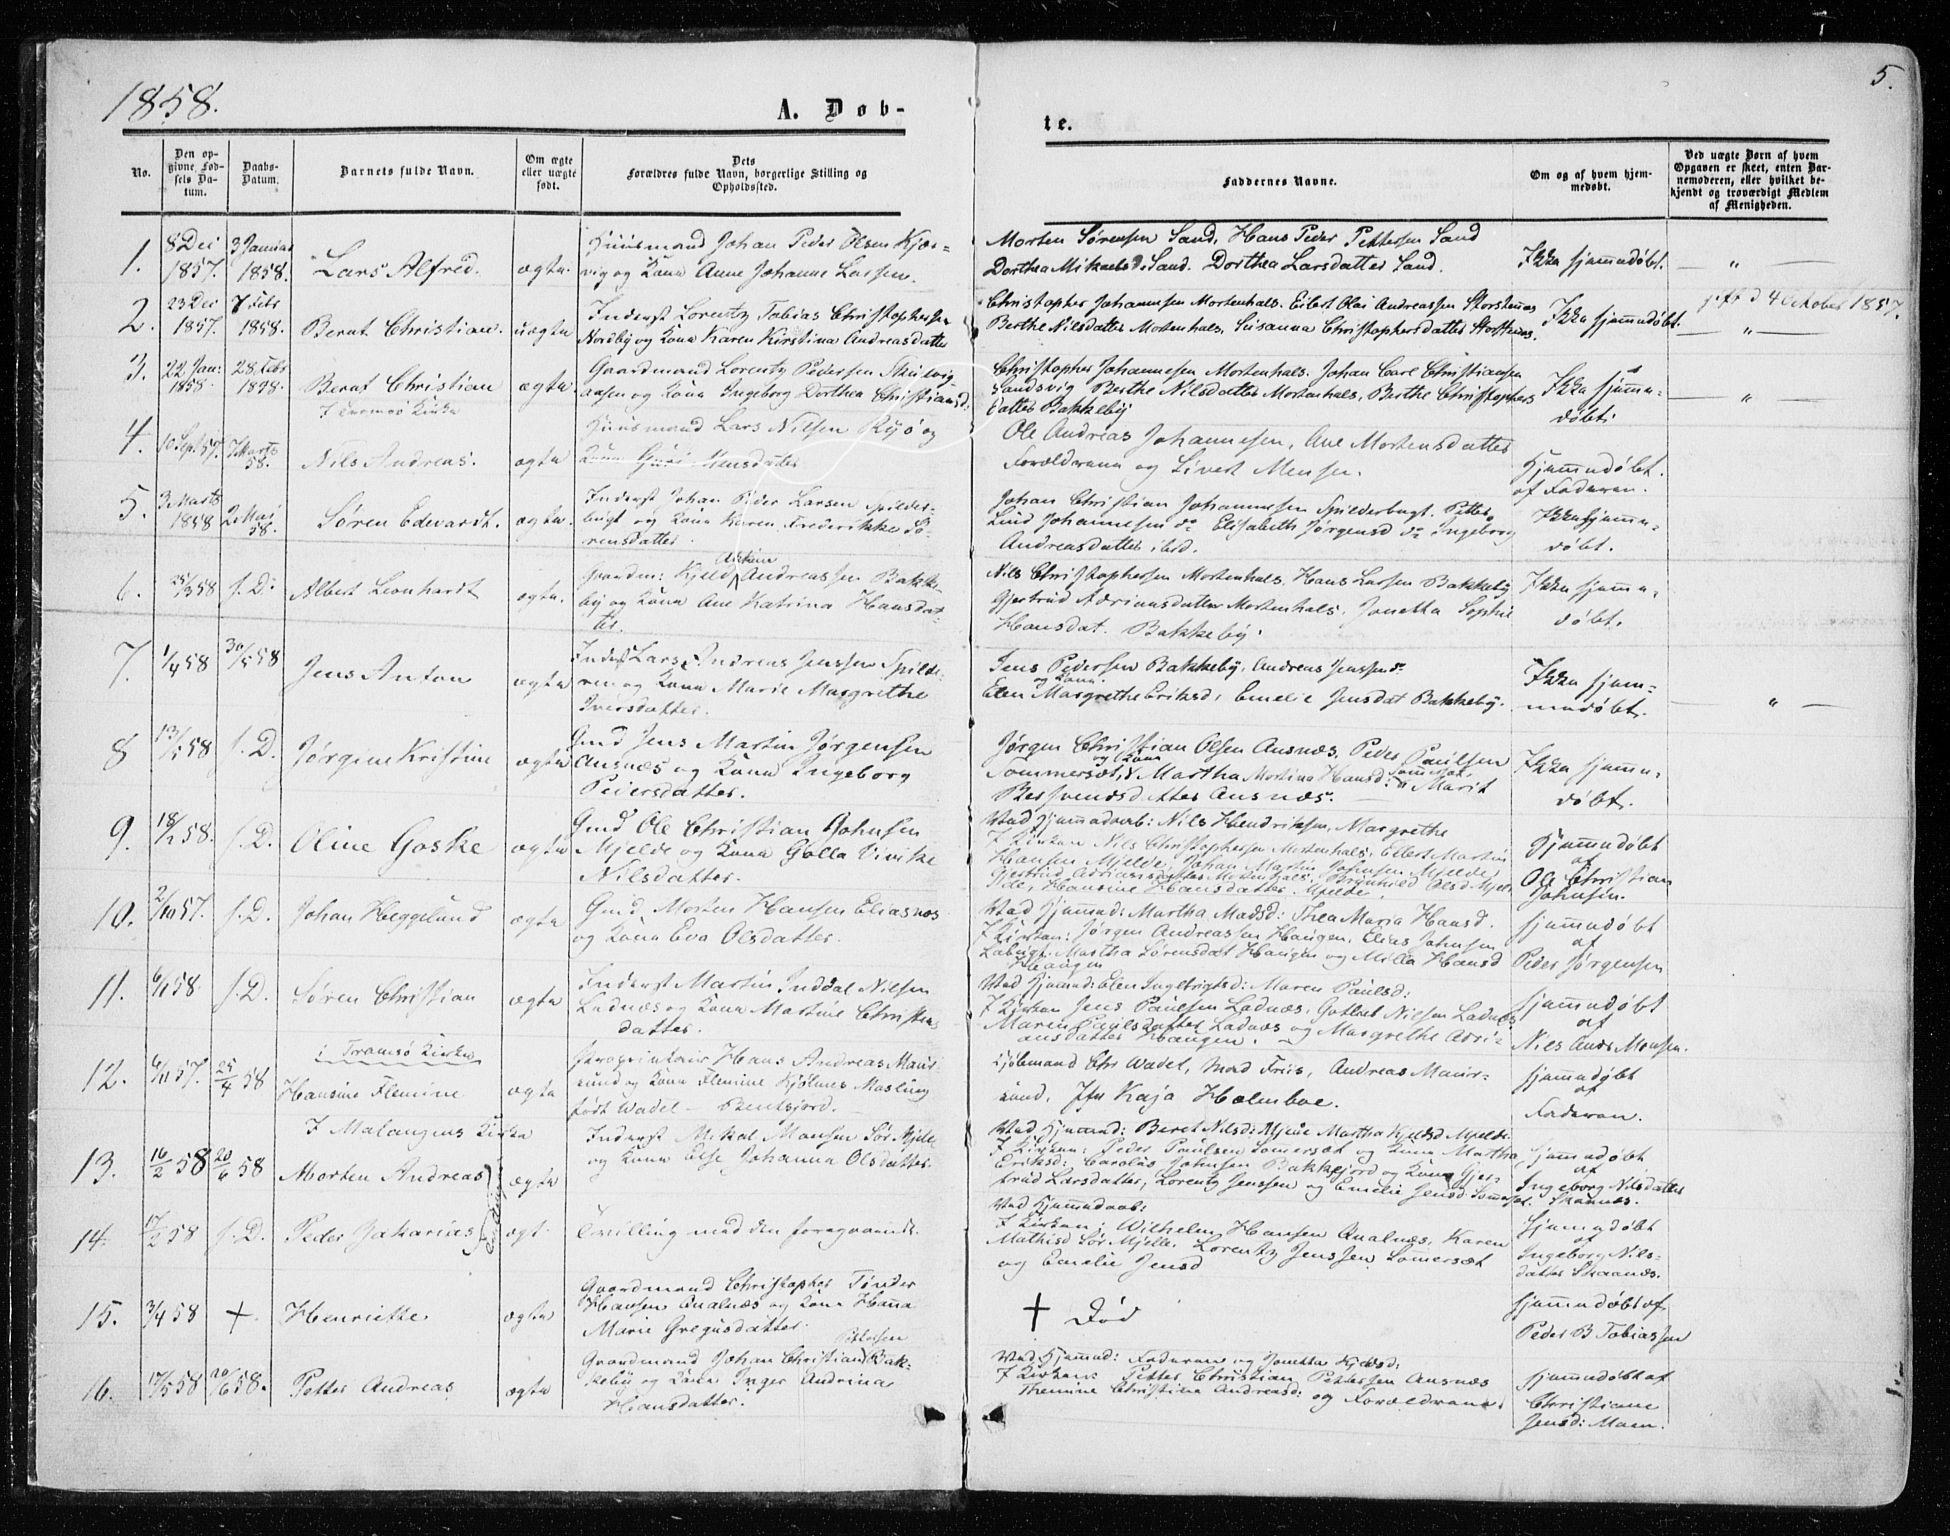 1858.
A. Døb-
te.
5.
No.
Den op-
givne Fød-
sels Da-
tum.
Daabs-
Datum.
Barnets fulde Navn.
Om ægte
eller uægte
født.
Dets
Forældres fulde Navn, borgerlige Stilling og
Opholdssted.
Faddernes Navne.
Om og af hvem hjem-
medøbt.
Ved uægte Børn af hvem
Opgaven er skeet, enten Bar-
nemoderen, eller hvilket be-
kjendt og troværdigt Medlem
af Menigheden.
1.
8 Dec
1857.
3 Januar
1858.
Lars Alfred.
ægte.
Huusmand Johan Peder Olsen Kjær-
vig og Kone Anne Johanne Larsen.
Morten Sørensen Sand, Hans Peder Pettersen Sand
Dorthea Mikaelsd. Sand. Dorthea Larsdatter Sand.
Ikke hjemmedøbt.
— " —
2.
23 Dec
1857.
7 Febr
1858.
Bernt Christian.
uægte
Inderst Lorentz Tobias Christophersen
Nordby og Kone Karen Kirstina Andreasdatter
Christopher Johannesen Mortenhals. Eilert Olai Andreassen Storstennæs
Berthe Nilsdatter Mortenhals. Susanna Christophersdatter Storstennæs.
Ikke hjemmedøbt.
gift d 4 October 1857.
— " —
3.
22 Jan:
1858.
28 Febr
1898.
Bernt Christian
ægte
Gaardmand Lorentz Pedersen
aasen og Kone Ingeborg Dorthea Christiansd.
Christopher Johannesen Mortenhals. Johan Carl Christiansen
Sandsvig Berthe Nilsdatter Mortenhals, Berthe Christophers
datter Bakkeby
Ikke hjemme-
døbt.
— " —
I Tromsø Kirke
4.
10 Sept 57.
7 Marts
58.
Nils Andreas.
ægte
Huusmand Lars Nilsen Ryø og
Kone Guri Monsdatter
Ole Andreas Johannesen, Ane Mortensdatter
Forældrene og Sivert Monsen.
Hjemmedøbt.
af Faderen.
5.
3 Marts
1858
2 Mai
58.
Søren Edevardt.
ægte.
Inderst Johan Peder Larsen Spilder-
bugt og Kone Karen Frederikke Sø-
rensdatter.
Johan Christian Johannesen Spilderbugt. Petter
Lind Johannesen do Elisabeth Jørgensd do Ingeborg
Andreasdatter ibid.
Ikke hjemme-
døbt.
6.
25/3 58
s. D.
Albert Leonhardt
ægte.
Gaardm: Kjeld Andreassen Bakke-
by og Kone Ane Katrina Hansdat-
ter.
Nils Christophersen Mortenhals. Hans Larsen Bakkeby
Gjertrud Adriansdatter Mortenhals. Jonetta Sophie
Hansdat. Bakkeby.
Ikke hjemme-
døbt.
7.
1/4 58
30/5 58
Jens Anton
ægte
Inderst Lars Andreas Jenssen Spilde-
ren og Kone Marie Margrethe
Iversdatter.
Jens Pedersen Bakkeby. Andreas Jenssen do
og Kone
Elen Margrethe Eriksd, Emelie Jensdat Bakkeby.
Ikke hjem-
medøbt.
— " —
8
13/5 58
s. D.
Jørgine Kristine
ægte
Gmd Jens Martin Jørgensen
Ansnæs og Kone Ingeborg
Pedersdatter.
Jørgen Christian Olsen Ansnæs. Peder Paulsen
Sommersæt, og Kone Martha Mortina Hansd: Sommersæt. Marit
Bersvendsdatter Ansnæs.
Ikke hjemme-
døbt.
9.
18/1 58.
s. D.
Oline Goske
ægte
Gmd Ole Christian Johnsen
Mjelde og Kone Golla Vivike
Nilsdatter.
Ved Hjemmedaab: Nils Hendriksen, Margrethe
I Kirken Nils Christophersen Mortenhals, Ellert Martin
Hansen Mjelde, Johan Martin Johnsen Mjelde
Gjertrud Adriansdatter Mortenhals, Brynhild Olsd Mjel-
de, Hansine Hansdatter Mjelde.
Hjemmedøbt
af
Ole Christian
Johnsen.
10.
2/10 57.
s. D.
Johan Heggelund
ægte
Gmd. Morten Hansen Eliasnæs
og Kone Eva Olsdatter.
Ved Hjemmed: Martha Madsd: Thea Maria Hansd.
I Kirken: Jørgen Andreassen Haugen, Elias Johnsen
Labugt. Martha Sørensdat Haugen og Milla Hansd
Haugen
hjemmedøbt
af
Peder Jørgensen
11.
6/1 58.
s. D.
Søren Christian
ægte
Inderst Martin Inddal Nilsen
Ladnæs og Kone Martine Christen-
datter.
Ved Hjemmed: Elen Ingebrigtsd: Maren Paulsd:
I Kirken Jens Paulsen Ladnæs, Gotlert Nielsen Ladnæs
Maren Paulsdatter Ladnæs og Margrethe Adri-
ansdatter Haugen.
hjemmedøbt
af
Nils Ands Monsen.
i Tromsø Kirke
12.
6/11 57.
25/4 58
Hansine Flemine
ægte
Proprietair Hans Andreas Maur-
sund og Kone Flemine Kjølmes Masling
født Wadel — Bentsjord.
Kjøbmand Chr Wadel, Mad Friis, Andreas Maur-
sund, Jfr Kaja Holmboe.
hjemmedøbt
af
Faderen.
I Malangens Kirke
13.
16/2 58
20/6 58
Morten Andreas
ægte
Inderst Mikal Monsen Sør Mjelle
og Kone Else Johanna Olsdatter.
Ved Hjemmed: Beret Nilsd: Mjelle Martha Kjeldsd Mjelde.
I Kirken: Peder Paulsen Somersæt og Kone Martha
Eriksd: Carolus Johnsen Bakkejord og Kone Gjer-
trud Larsdatter, Lorentz Jenssen og Emelie Jensd: Somersæt.
hjemmedøbt
af
Ingeborg Nilsdatter
Skaanæs.
14.
17/2 58
s. D.
Peder Zakarias
ægt.
Tvilling med den foregaaende.
Ved Hjemmedaab:
I Kirken: Wilhelm Hansen Aualnæs, Karen
Mathisd Sør Mjelle. Lorentz Jenssen Somersæt
og Emelie Jensd
hjemmedøbt
af
Ingeborg Nils-
datter Skaanæs.
15.
3/4 58
+
Henriette
ægte
Gaardmand Christopher Tønder
Hansen Aualnæs og Kone Hanna
Marie Gregusdatter.
† Død
hjemmedøbt af
Peder B Tobiassen
16.
17/5 58
20/6 58.
Petter Andreas
ægte
Gaardmand Johan Christian Pettersen Bak-
keby og Kone Inger Andrina
Hansdatter.
Ved Hjemmed: Faderen og Jonetta Kjeldsd:
I Kirken: Petter Christian Pettersen Ansnæs
Themine Christina Andreasd: og Forældrene.
hjemmedøbt af
Christiane
Jensd: Moen.